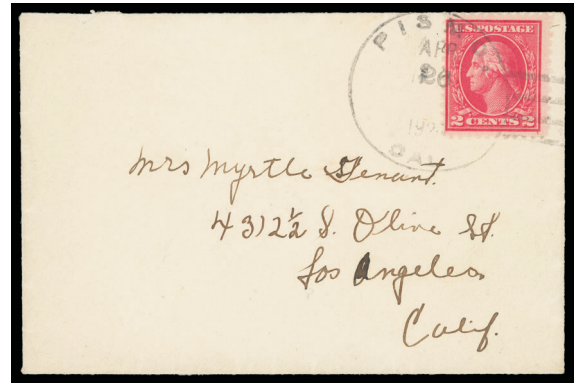 PISM
APR
26
192
CAL
U.S.POSTAGE
2 CENTS 2
Mrs Myrtle Tenant.
4312½ S. Olive St.
Los Angeles
Calif.